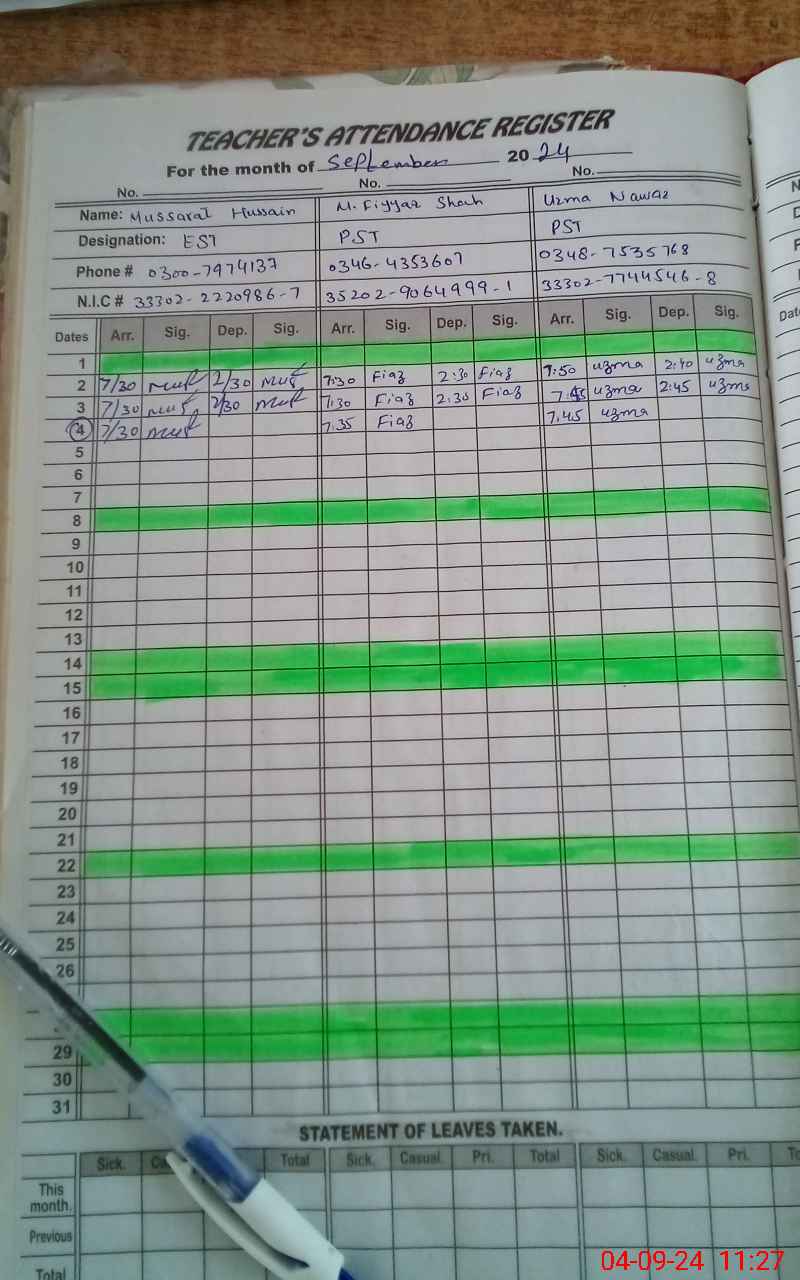 TEACHER'S ATTENDANCE REGISTER
For the month of September 2024
No. No. No.
Name: Mussarat Hussain M. Fiyyaz Shah Uzma Nawaz
Designation: EST PST PST
Phone # 0300-7974137 0346-4353607 0348-7535768
N.I.C # 33302-2220986-7 35202-9064999-1 33302-7744546-8
Dates Arr. Sig. Dep. Sig. Arr. Sig. Dep. Sig. Arr. Sig. Dep. Sig.
1
2 7/30 2/30 7:30 Fiaz 2:30 Fiaz 7:50 uzma 2:40 uzma
3 7/30 2/30 7:30 Fiaz 2:30 Fiaz 7:45 uzma 2:45 uzma
4 7/30 7:35 Fiaz 7:45 uzma
5
6
7
8
9
10
11
12
13
14
15
16
17
18
19
20
21
22
23
24
25
26
29
30
31
STATEMENT OF LEAVES TAKEN.
Sick. Total Sick. Casual. Pri. Total Sick. Casual. Pri.
This month.
Previous
Total
04-09-24 11:27